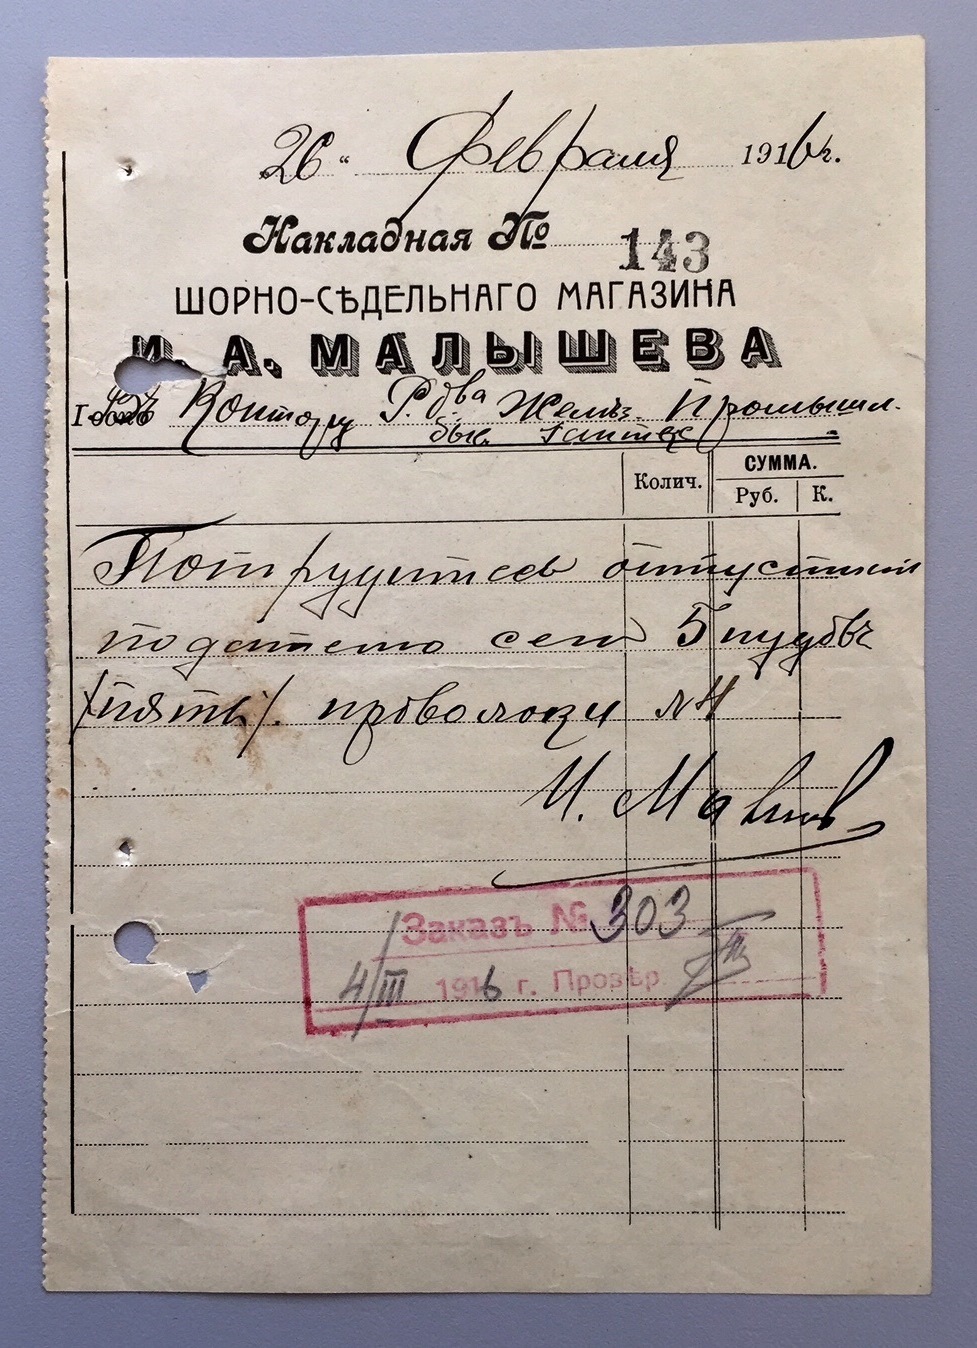 26 " Февраля 1916 г.
Накладная № 143
ШОРНО-СѢДЕЛЬНАГО МАГАЗИНА
И. А. МАЛЫШЕВА
Контору Р. О-ва Желѣз. Промышл.
быв.
Колич. СУММА.
Руб. К.
Потрудитесь отпустить
подателю сего 5 пудовъ
/пять/. проволоки №4
И. Малышев
Заказъ № 303
4/III 1916 г. Провѣр